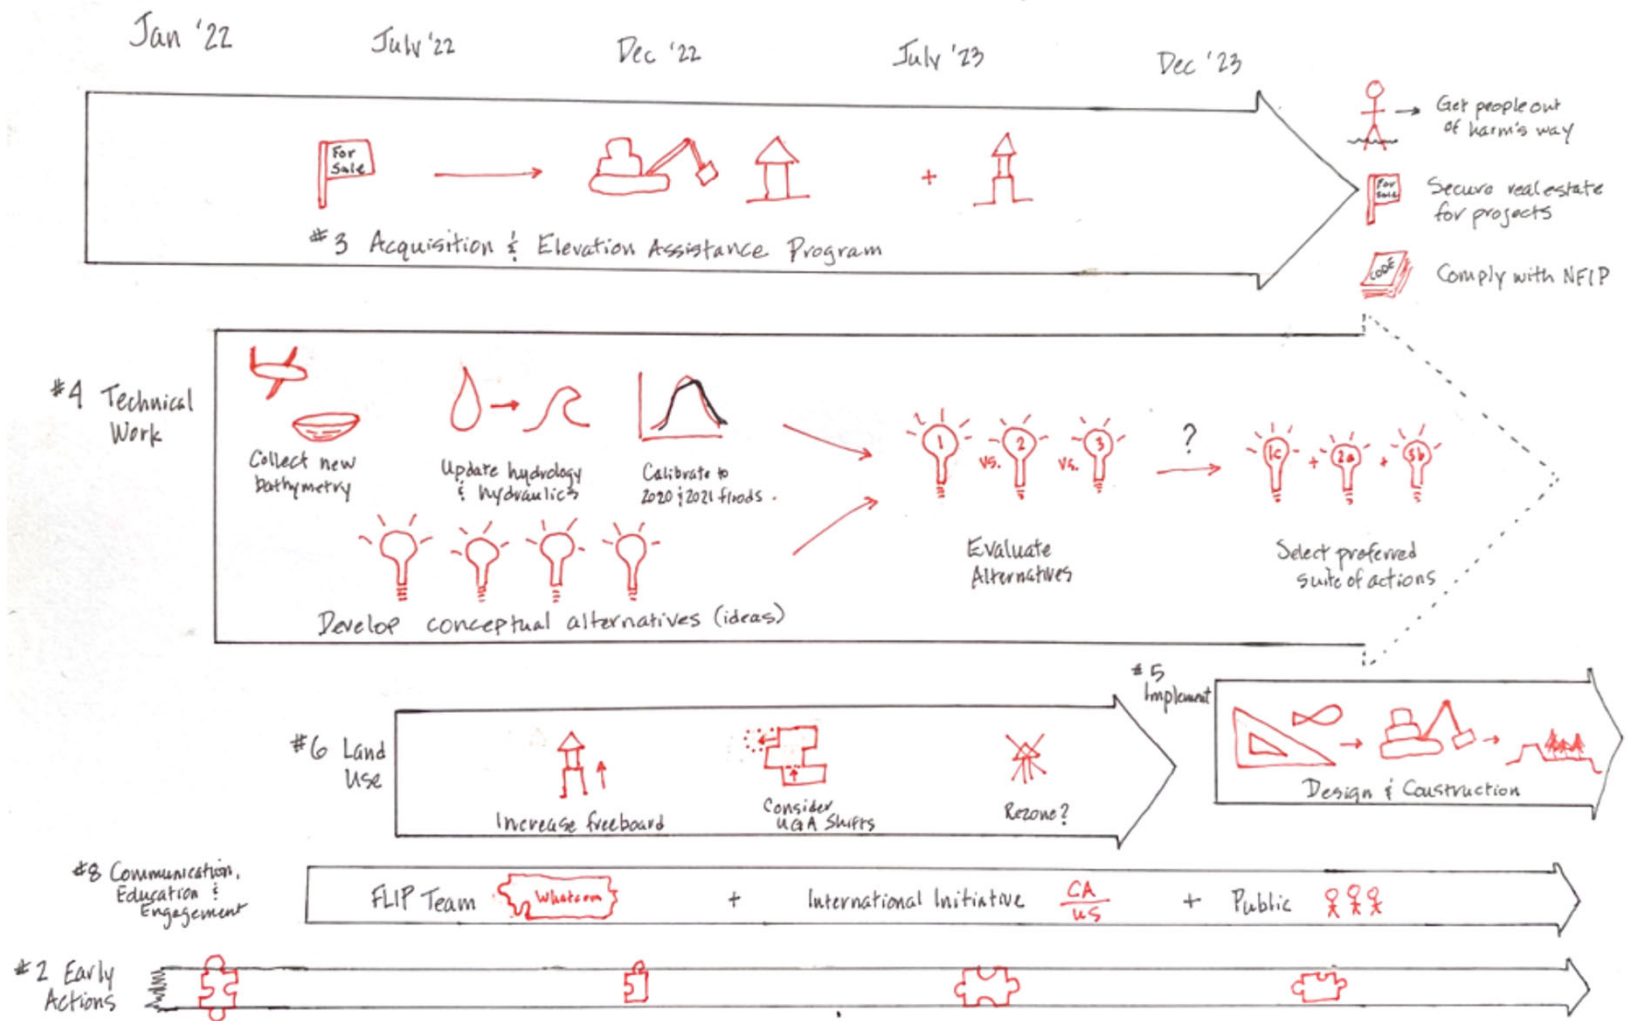 Jan '22
July '22
Dec '22
July '23
Dec '23
For
Sale
#3 Acquisition & Elevation Assistance Program
+
Get people out
of harm's way
For
Sale
Secure real estate
for projects
CODE
Comply with NFIP
#4 Technical
Work
Collect new
bathymetry
Update hydrology
& hydraulics
Calibrate to
2020 & 2021 floods.
Develop conceptual alternatives (ideas)
1 vs. 2 vs. 3
Evaluate
Alternatives
?
1c + 2a + 3b
Select preferred
suite of actions
#5
Implement
Design & Construction
#6 Land
Use
Increase freeboard
Consider
UGA Shifts
Rezone?
#8 Communication,
Education &
Engagement
FLIP Team Whatcom + International Initiative CA + Public
US
#2 Early
Actions